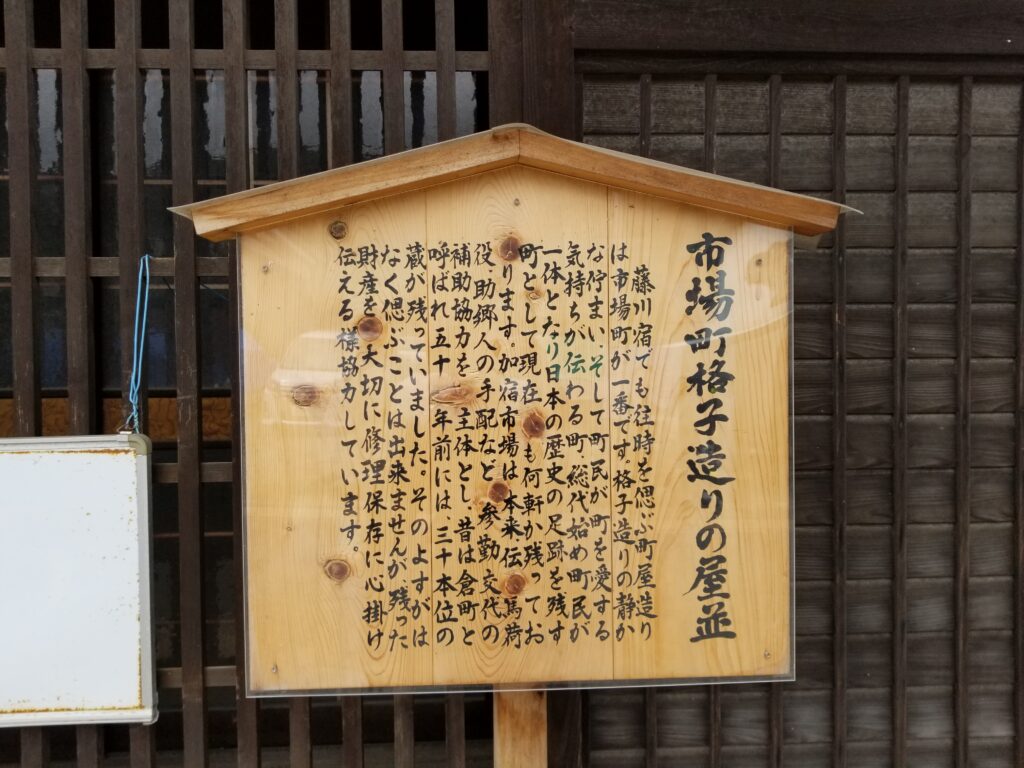 市場町格子造りの屋並
藤川宿でも往時を偲ぶ町屋造り
は市場町が一番です格子造りの静か
な佇まい、そして町民が町を愛する
気持ちが伝わる町総代始め町民が
一体となり日本の歴史の足跡を残す
町として現在も何軒か残ってお
ります。加宿市場は本来伝馬荷
役助郷人の手配など参勤交代の
補助協力を主体とし、昔は倉町と
呼ばれ五十年前には三十本位の
蔵が残っていました。そのよすがは
なく偲ぶことは出来ませんが、残った
財産を大切に修理保存に心掛け
伝える様協力しています。